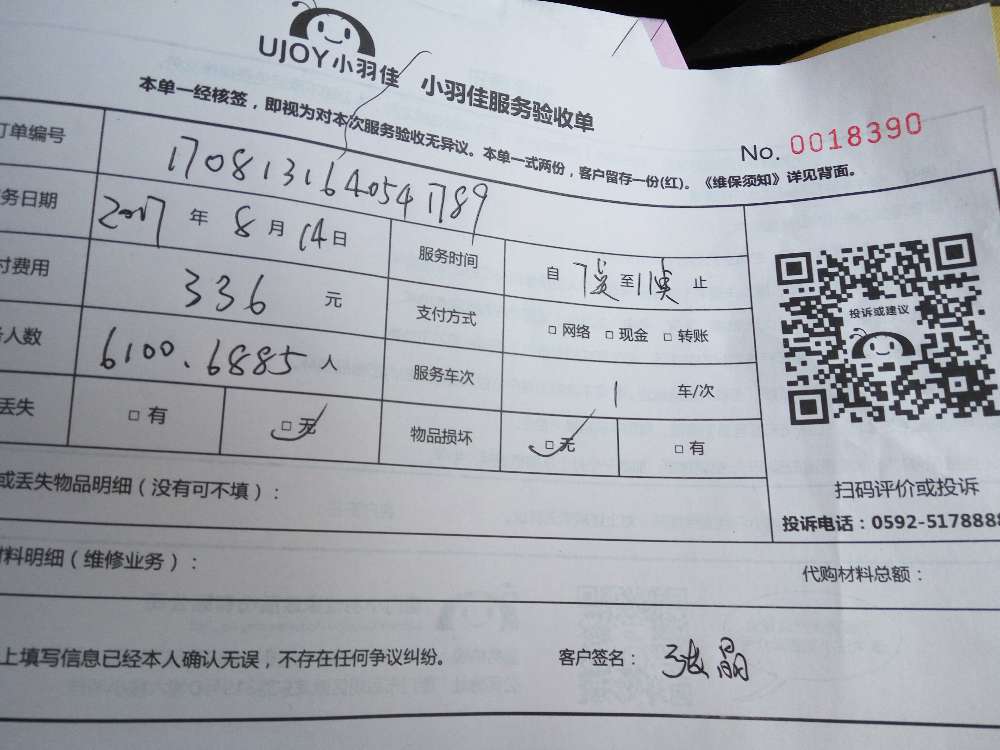 UJOY小羽佳 小羽佳服务验收单
本单一经核签，即视为对本次服务验收无异议。本单一式两份，客户留存一份(红)。《维保须知》详见背面。
No. 0018390
订单编号 1708131640541789
务日期 2017 年 8 月 14 日 服务时间 自 至 止
付费用 336 元 支付方式 □ 网络 □ 现金 □ 转账
人数 6100.6885 人 服务车次 1 车/次
丢失 □ 有 □ 无 物品损坏 □ 无 □ 有
投诉或建议
扫码评价或投诉
投诉电话：0592-5178888
或丢失物品明细（没有可不填）：
材料明细（维修业务）： 代购材料总额：
上填写信息已经本人确认无误，不存在任何争议纠纷。 客户签名： 张晶